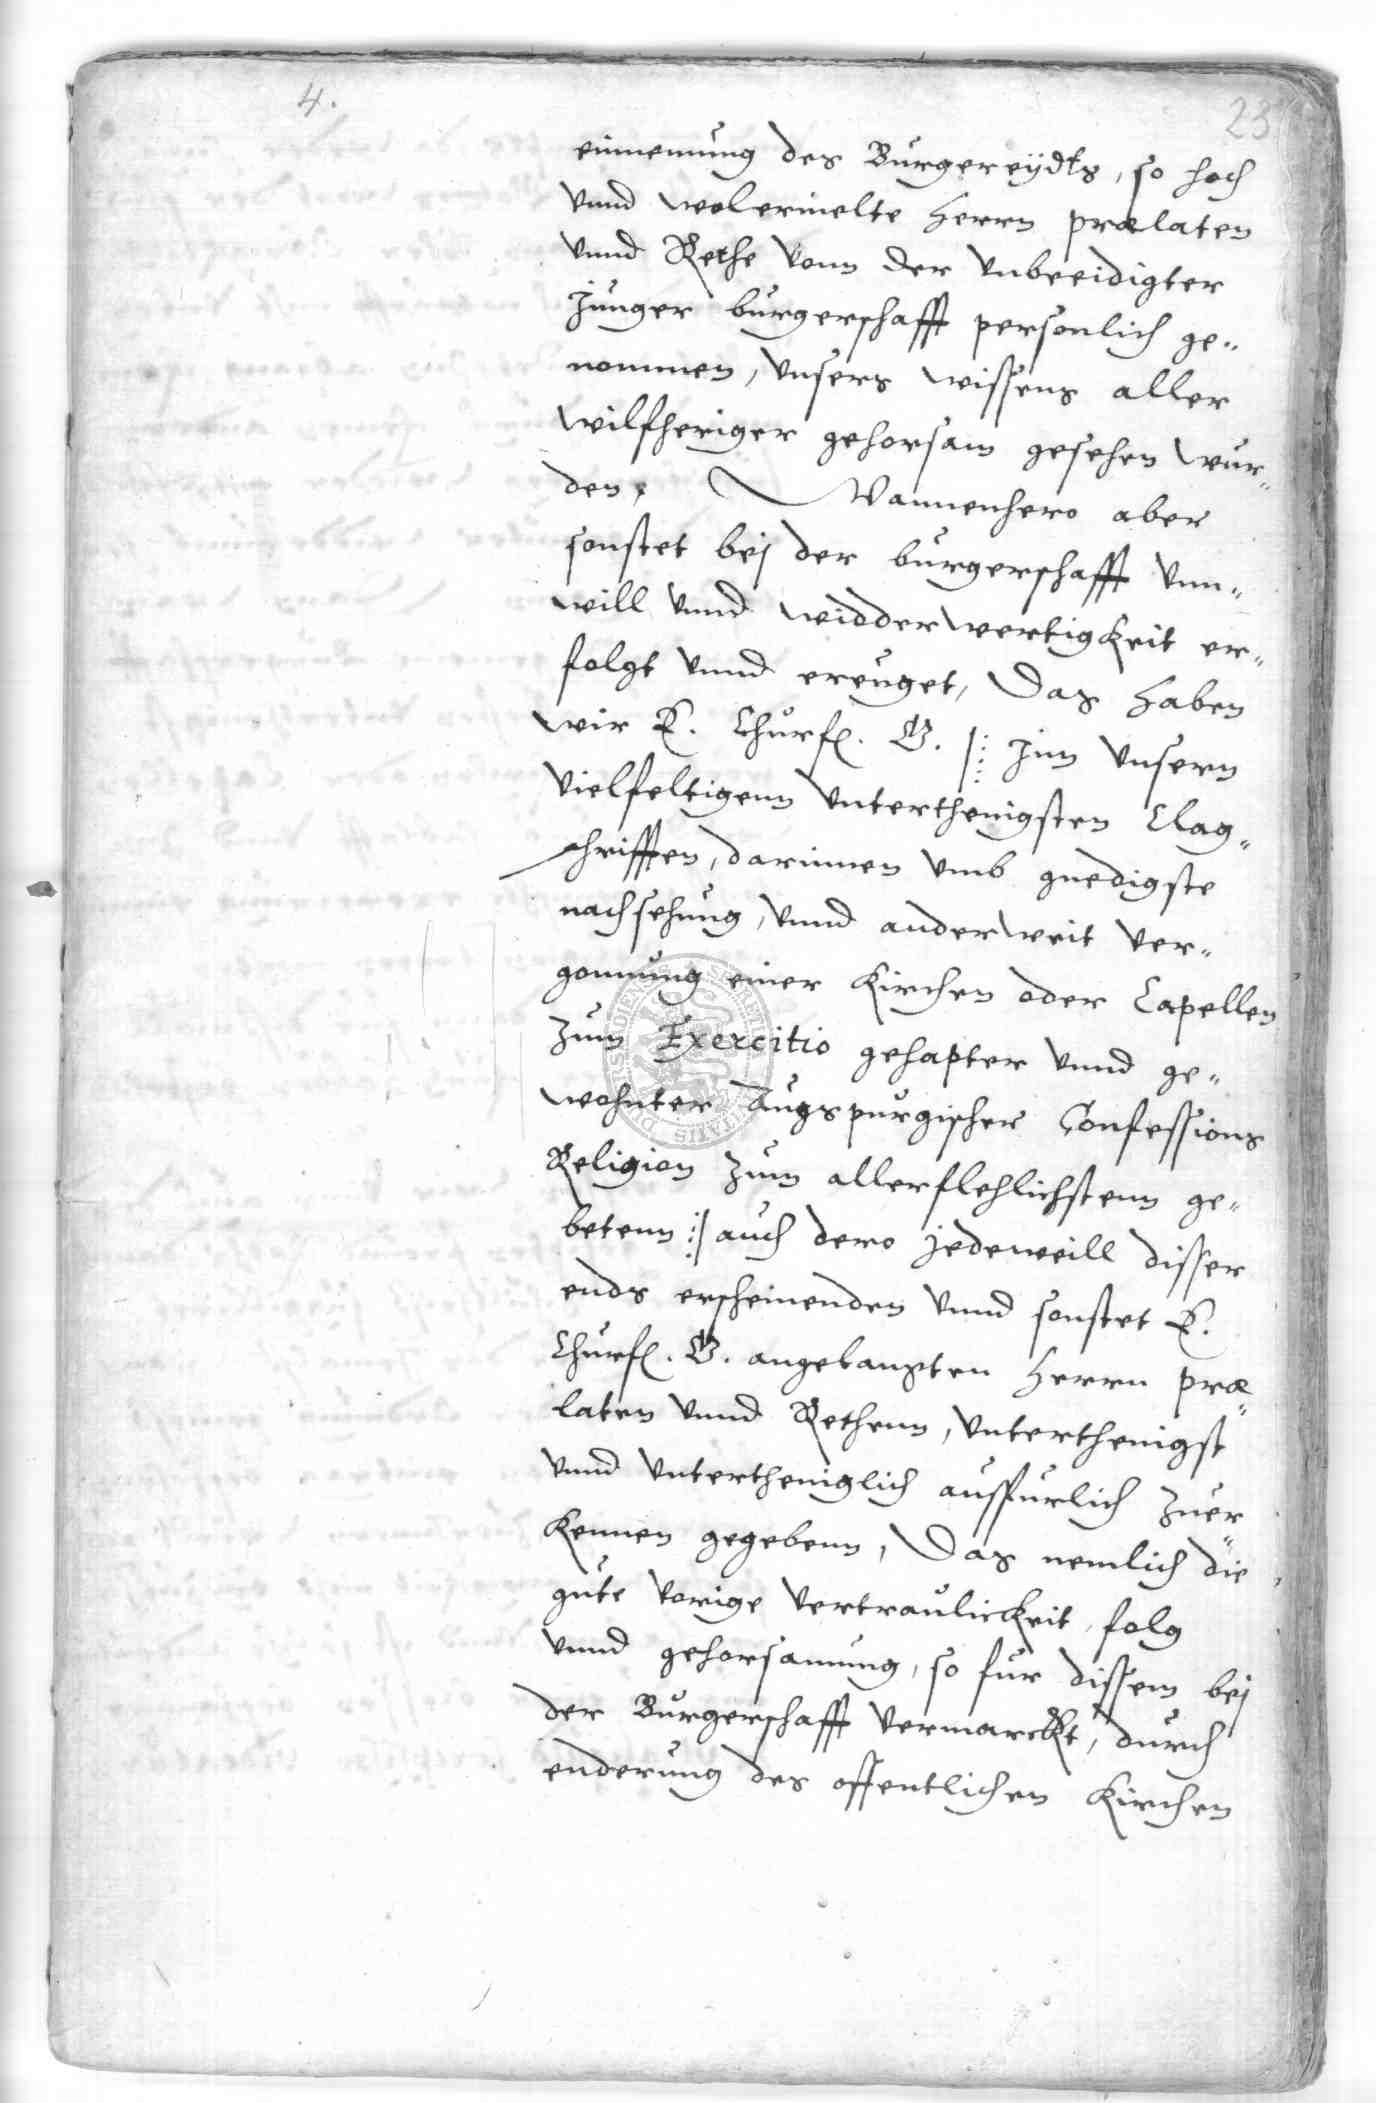 4.
23
einnemung des Burgereÿdts, so hoch
vnnd wolermelte Herrn prælaten
vnnd Rethe vonn der vnbeeidigter
Junger burgerschafft personlich ge„
nommen, vnsers wissens aller
wilfheriger gehorsam gesehen wur„
den, Wannenhero aber
sonstet bej der burgerschafft vnn„
will vnnd widderwertigkeit er„
folgt vnnd ereuget, Das haben
wir E. Churfl. G. |: Inn vnsern
vielfeltigenn vnterthenigsten Clag„
schrifften, darinnen vmb gnedigste
nachsehung, vnnd anderweit ver„
gonnung einer Kirchen oder Capellen
zum Exercitio gehapter vnnd ge„
wohnter Augspurgischer Confessions
Religion zum allerflehlichstenn ge„
betenn :| auch dero Jedeweill disser
ends erscheinenden vnnd sonstet E.
Churfl. G. angelangten Herrn præ„
laten vnnd Rethenn, vnterthenigst
vnnd vntertheniglich ausfurlich zuer„
kennen gegebenn, Das nemlich die
gute vorige vertraulickeit, folg
vnnd gehorsamung, so fur dissem bej
der Burgerschafft vermarckt, durch
enderung des offentlichen Kirchen